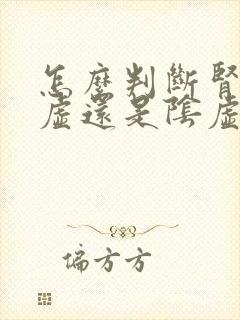 怎麼判斷腎
虛還是陰虛
偏方方